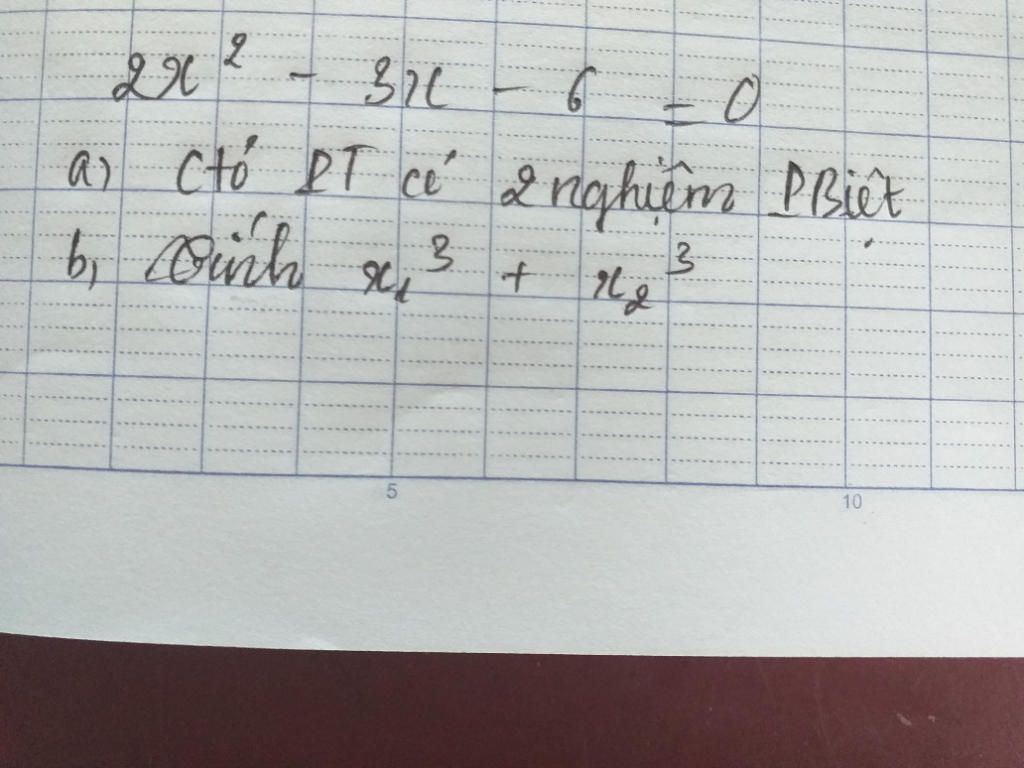 2x² - 3x - 6 = 0
a) Ctỏ PT có 2 nghiệm PBiệt
b, Tính x₁³ + x₂³
5 10